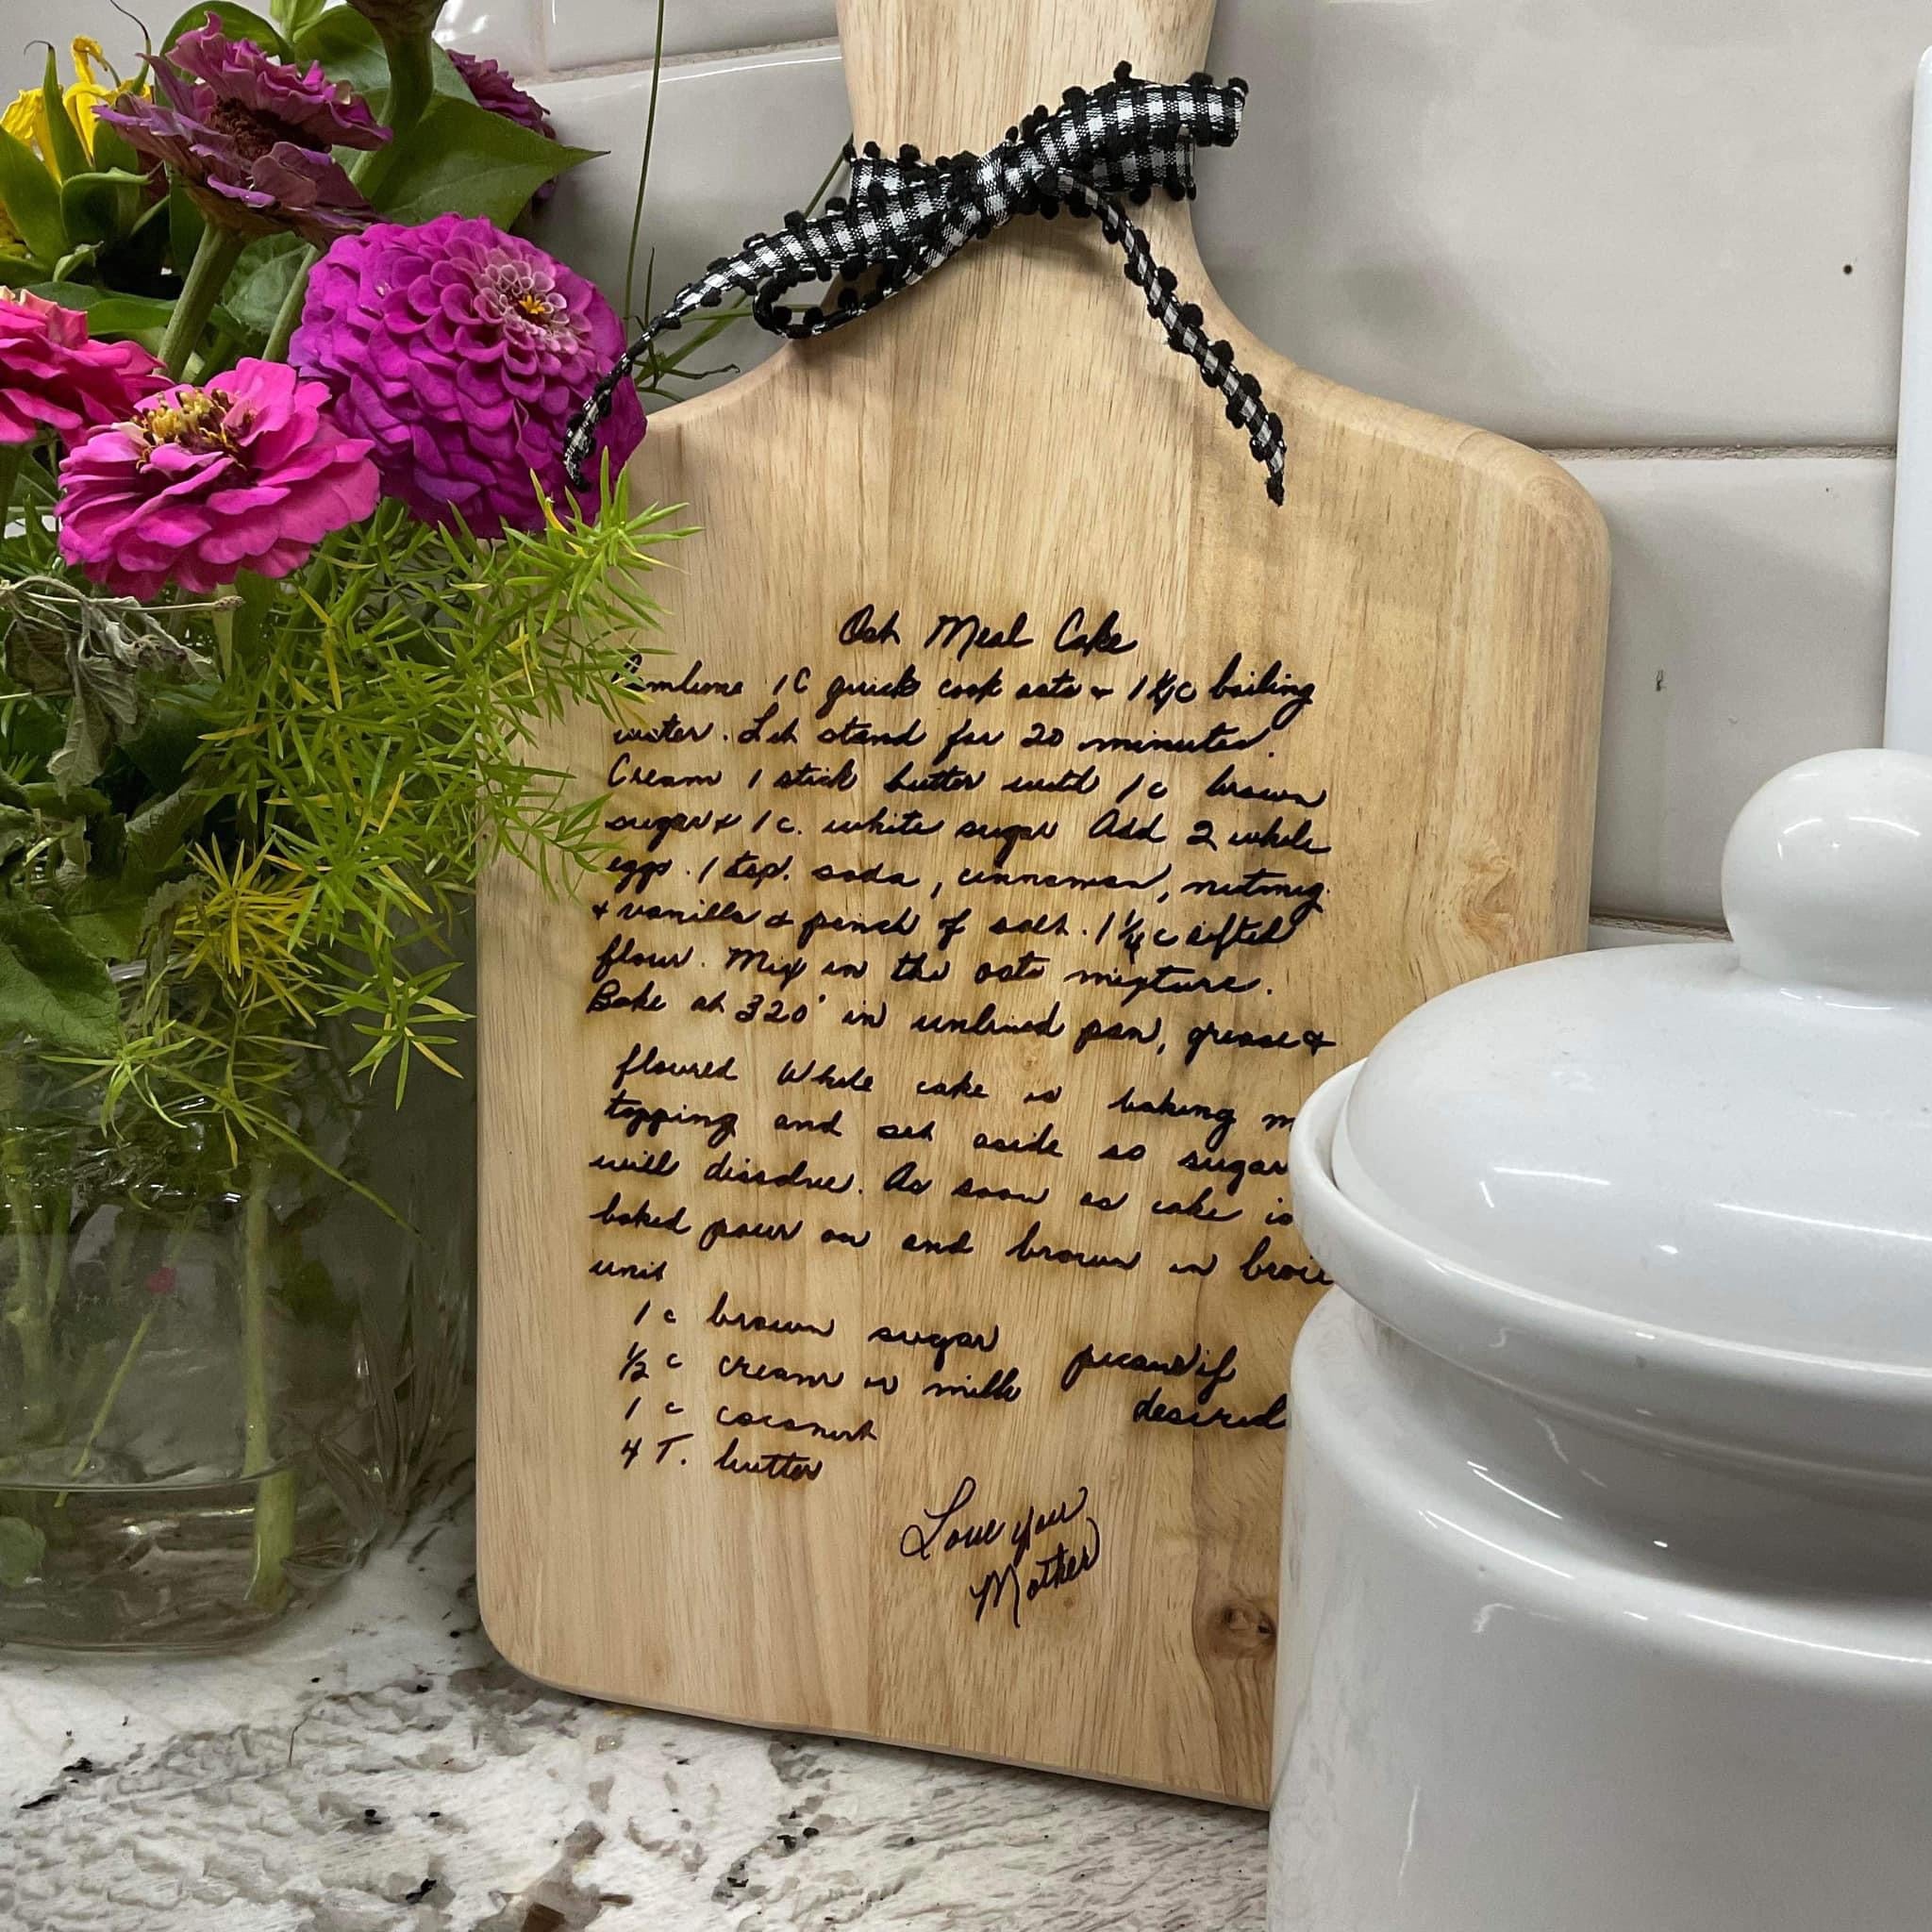 Oat Meal Cake
Combine 1 C quick cook oats & 1 1/4 c boiling
water. Let stand for 20 minutes.
Cream 1 stick butter until 1 c brown
sugar & 1 c. white sugar Add 2 whole
eggs. 1 tsp. soda, cinnamon, nutmeg
& vanilla & pinch of salt. 1 1/4 c sifted
flour. Mix in the oats mixture.
Bake at 320° in unlined pan, grease &
floured While cake is baking m
topping and set aside so sugar
will dissolve. As soon as cake is
baked pour on and brown in broil
unit
1 c brown sugar pecans if
1/2 c cream or milk desired
1 c coconut
4 T. butter
Love you
Mother